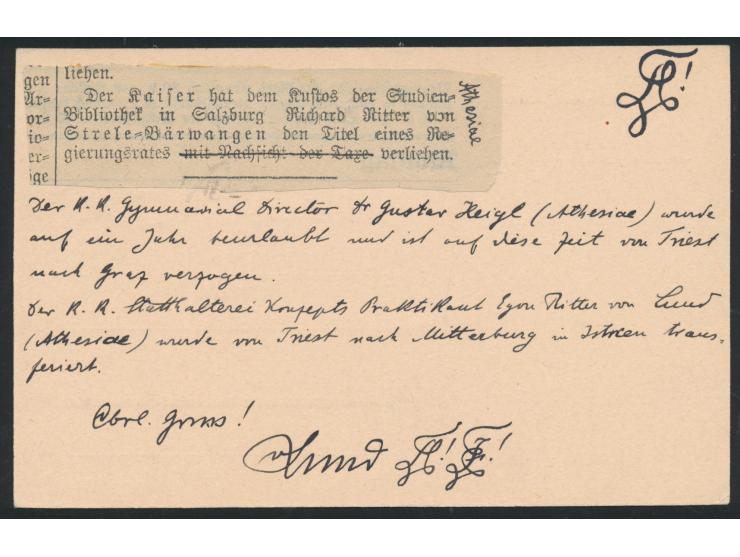 gen
Ar-
or-
io-
er-
ige
liehen.
Der Kaiser hat dem Kustos der Studien-
Bibliothek in Salzburg Richard Ritter von
Strele-Bärwangen den Titel eines Re-
gierungsrates mit Nachsicht der Taxe verliehen.
Athesiae
Der K. K. Gymnasial Director Dr Gustav Heigl (Athesiae) wurde
auf ein Jahr beurlaubt und ist auf diese Zeit von Triest
nach Graz verzogen.
Der K. K. Statthalterei Konzepts Praktikant Egon Ritter von Lund
(Athesiae) wurde von Triest nach Mitterburg in Istrien trans-
feriert.
Cbrl. Gruss!
vLund